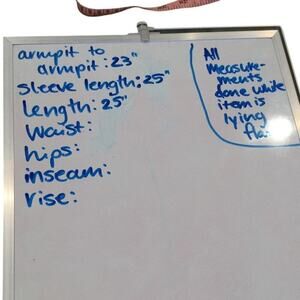 armpit to
armpit: 23"
Sleeve length: 25"
Length: 25"
Waist:
hips:
inseam:
rise:
All
measure-
ments
done while
item is
lying